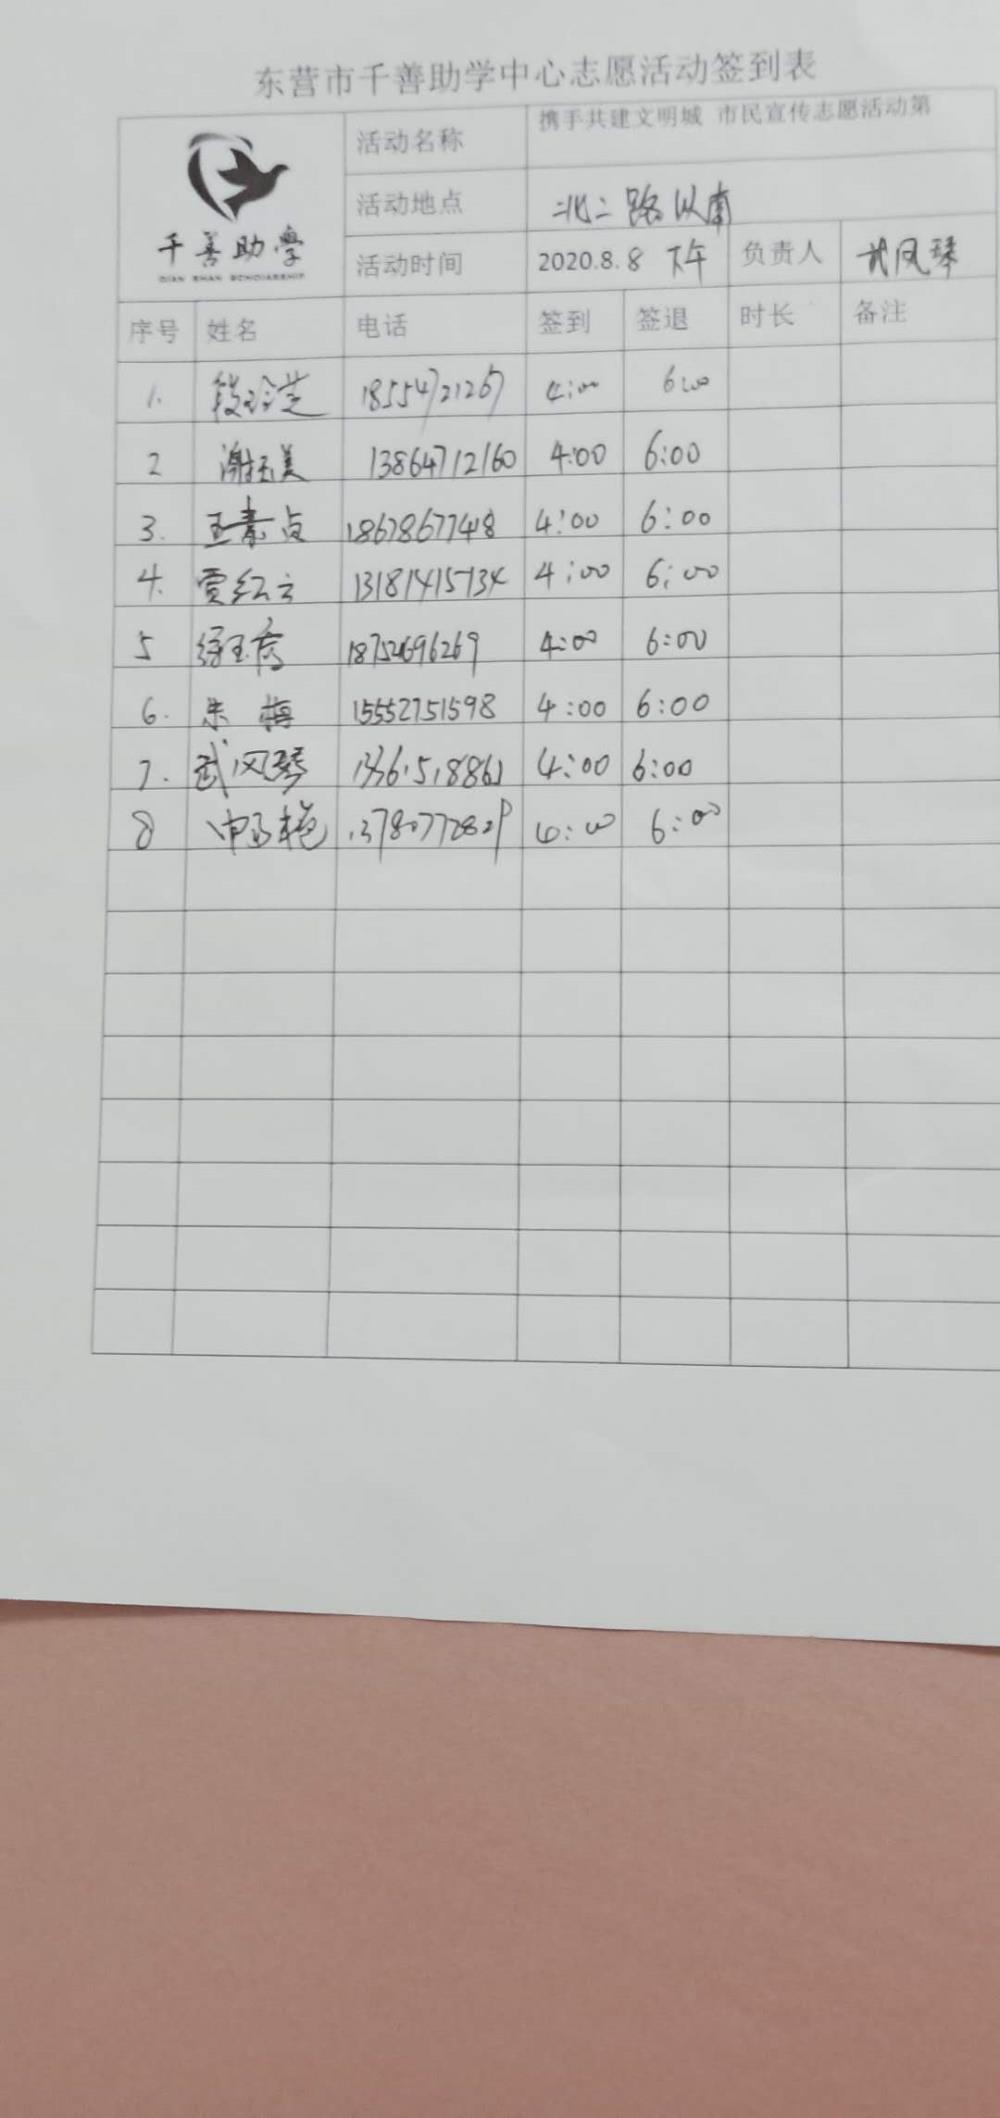 东营市千善助学中心志愿活动签到表
千善助學
QIAN SHAN SCHOLARSHIP
活动名称 携手共建文明城 市民宣传志愿活动第
活动地点 北二路以南
活动时间 2020.8.8 下午 负责人 武风琴
序号 姓名 电话 签到 签退 时长 备注
1. 段玲芝 18554721267 4:00 6:00
2 谢玉美 13864712160 4:00 6:00
3. 王素贞 18678677418 4:00 6:00
4. 贾红云 13181415734 4:00 6:00
5 18752696269 4:00 6:00
6. 朱梅 15552751598 4:00 6:00
7. 武风琴 4:00 6:00
8 4:00 6:00